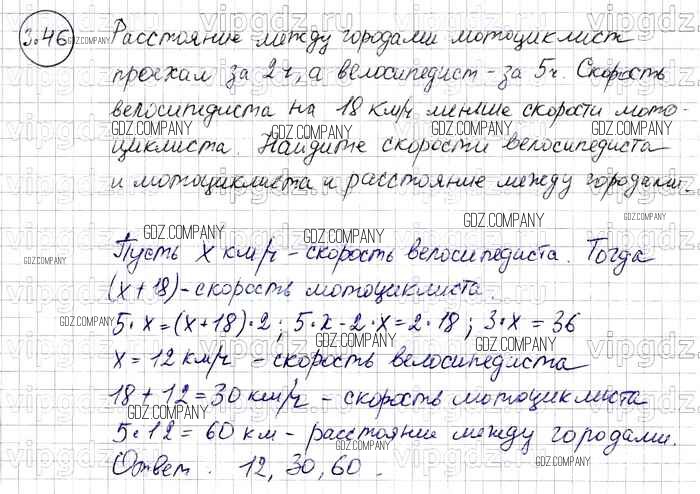 3.46 Расстояние между городами мотоциклист
проехал за 2ч, а велосипедист - за 5ч. Скорость
велосипедиста на 18 км/ч меньше скорости мото-
циклиста. Найдите скорости велосипедиста
и мотоциклиста и расстояние между городами.
Пусть х км/ч - скорость велосипедиста. Тогда
(х+18) - скорость мотоциклиста.
5·х=(х+18)·2; 5·х-2·х=2·18; 3·х=36
х=12 км/ч - скорость велосипедиста
18+12=30 км/ч - скорость мотоциклиста
5·12=60 км - расстояние между городами.
Ответ. 12, 30, 60.
GDZ.COMPANY
vipgdz.ru